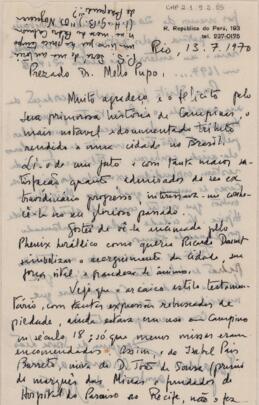 CMP 2.1.9.2.65
R. República do Perú, 193
tel. 237-0175
Rio, 13.7.1970
Prezado Dr. Mello Pupo,
Muito agradeço e o felicito pela
sua primorosa história de Campinas, o
mais notavel e documentado tributo
rendido a uma cidade no Brasil.
Li-o de um jato e com tanta maior sa-
tisfação quanto admirador de seu ex-
traordinário progresso, interessava-me conhe-
cê-la no seu glorioso passado.
Gostei de vê-la irmanada pelo
Phenix heráldico como queria Ricardo Daunt
simbolizar o reerguimento da cidade, em
força vital e grandeza de ânimo.
Vejo que o arcaico estilo testamen-
tário, com tantas expressões rebuscadas de
piedade, ainda estava em uso em Campinas
no século 18; só que menos missas eram
encomendadas. Assim, a de Isabel Pais
Barreto, mãe de D. João de Souza (primo
do marquês das Minas, fundador do
Hospital do Paraiso ao Recife, não o fez